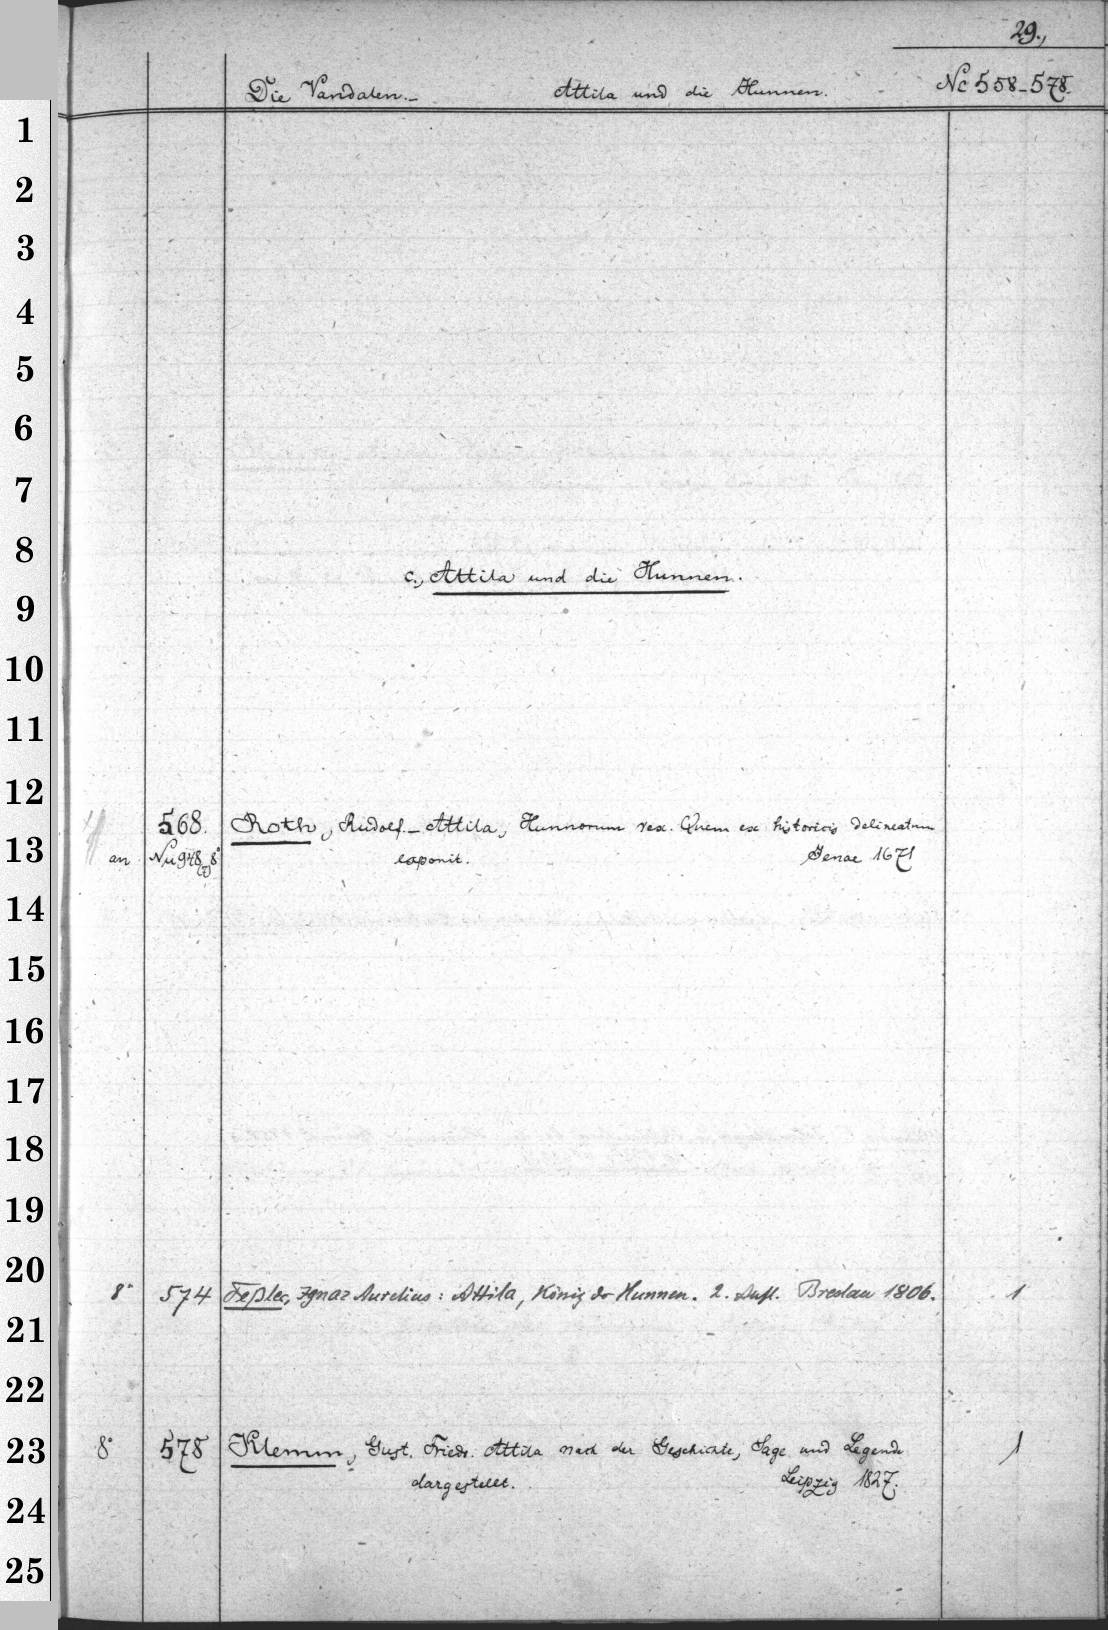 29.,
Die Vandalen._ Attila und die Hunnen. Nc 558-578.
1
2
3
4
5
6
7
8
c., Attila und die Hunnen.
9
10
11
12
568. Roth, Rudolf._ Attila, Hunnorum rex. Quem ex historicis delineatum
13 an Nu 948, 8° exponit. Jenae 1671
14
15
16
17
18
19
20
8° 574 Feßler, Ignaz Aurelius: Attila, König der Hunnen. 2. Aufl. Breslau 1806. 1
21
22
23 8° 578 Klemm, Gust. Friedr. Attila nach der Geschichte, Sage und Legende 1
dargestellt. Leipzig 1827.
24
25